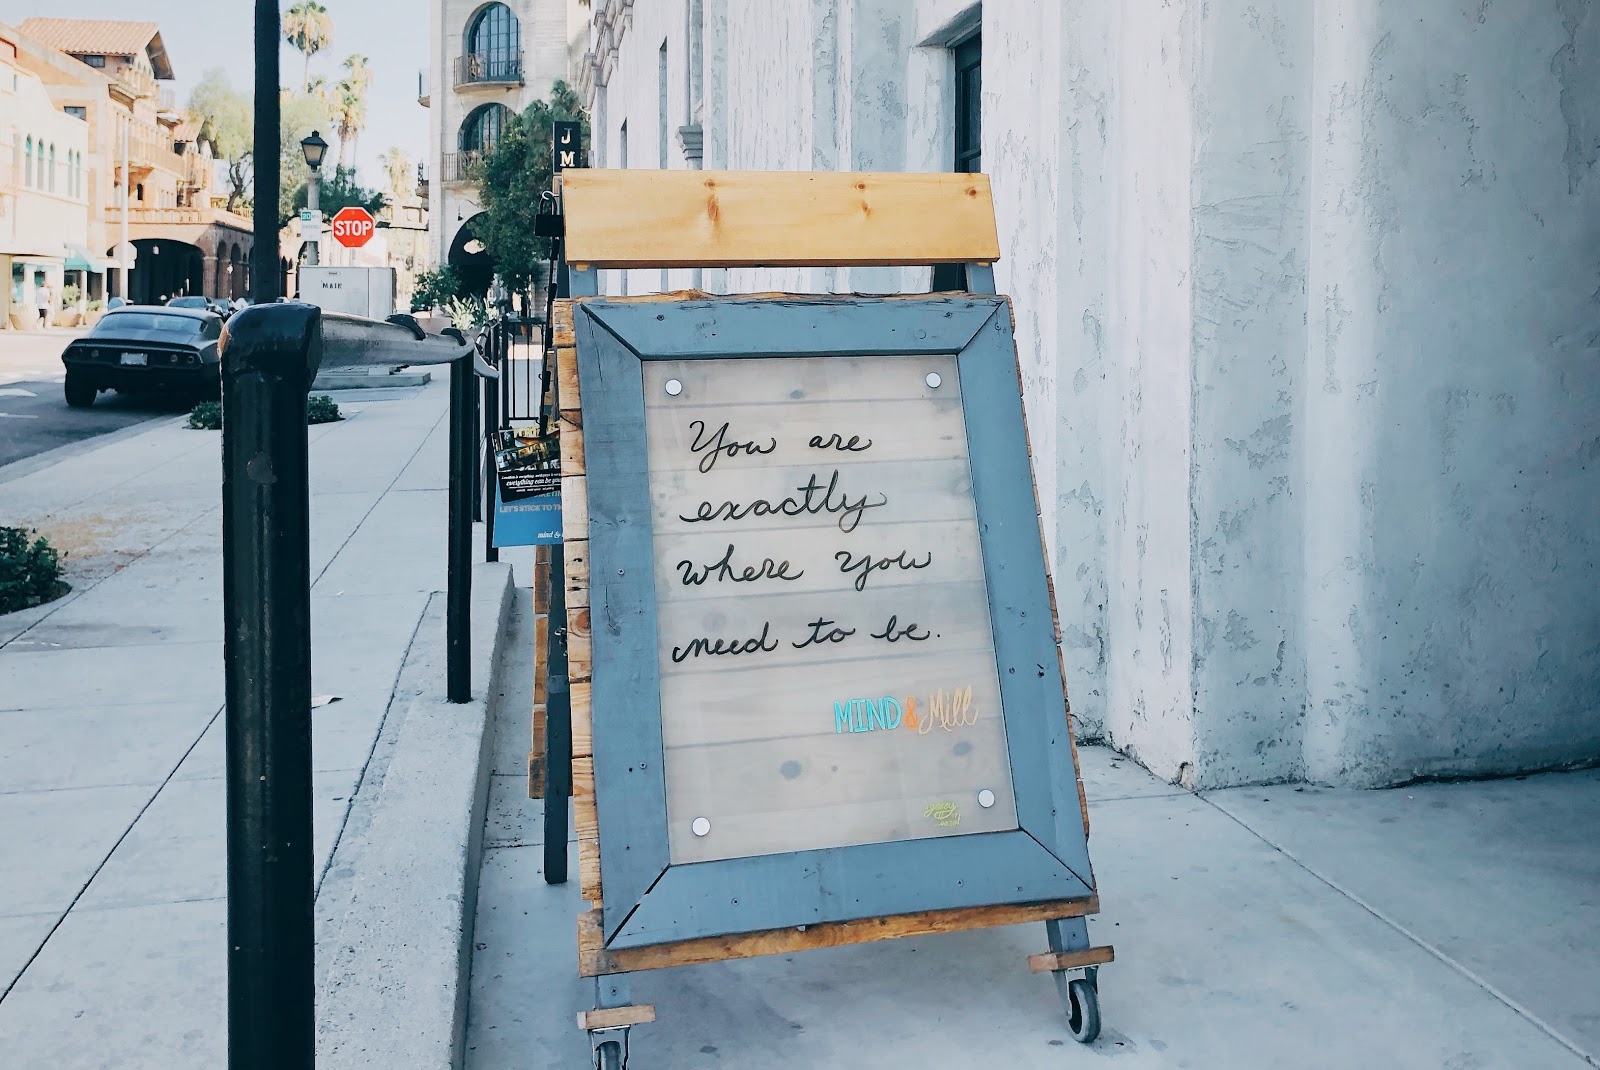 J
M
STOP
MAIN
You are
exactly
where you
need to be.
MIND & Mill
everything can be
LET'S STICK TO TH
mind &